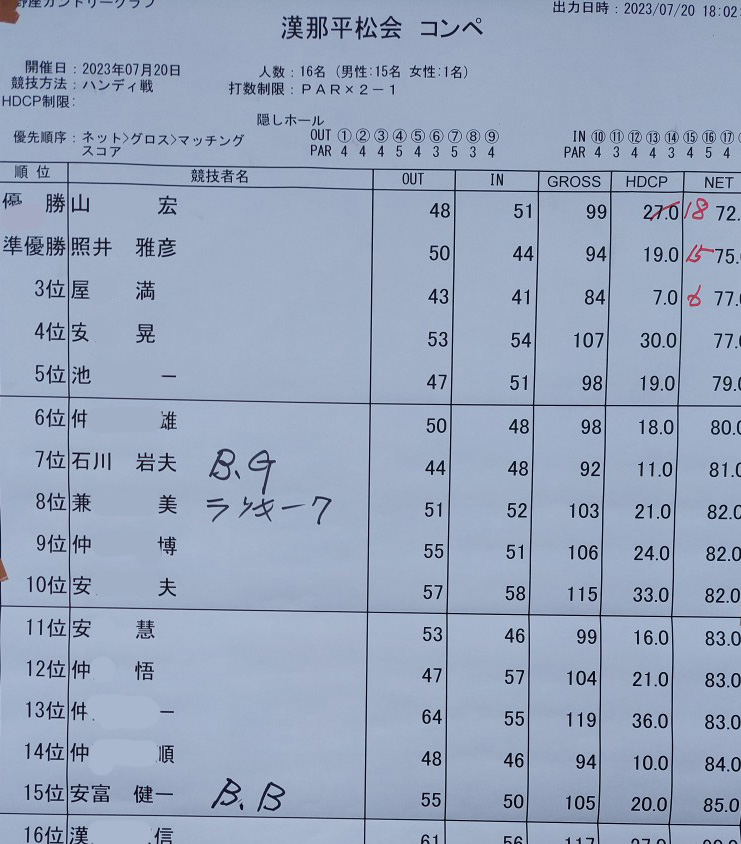 野座カントリークラブ
出力日時：2023/07/20 18:02:
漢那平松会 コンペ
開催日：2023年07月20日
人数：16名（男性:15名 女性:1名）
競技方法：ハンディ戦
打数制限：ＰＡＲ×２－１
HDCP制限:
隠しホール
優先順序：ネット>グロス>マッチングスコア
OUT ①②③④⑤⑥⑦⑧⑨
IN ⑩⑪⑫⑬⑭⑮⑯⑰
PAR 4 4 4 5 4 3 5 3 4
PAR 4 3 4 4 3 4 5 4
順 位 競技者名 OUT IN GROSS HDCP NET
優 勝 山 宏 48 51 99 27.0 18 72.
準優勝 照井 雅彦 50 44 94 19.0 15 75.
3位 屋 満 43 41 84 7.0 6 77.
4位 安 晃 53 54 107 30.0 77.
5位 池 一 47 51 98 19.0 79.
6位 仲 雄 50 48 98 18.0 80.
7位 石川 岩夫 B.G 44 48 92 11.0 81.
8位 兼 美 ラッキー7 51 52 103 21.0 82.
9位 仲 博 55 51 106 24.0 82.
10位 安 夫 57 58 115 33.0 82.
11位 安 慧 53 46 99 16.0 83.
12位 仲 悟 47 57 104 21.0 83.
13位 仲 一 64 55 119 36.0 83.
14位 仲 順 48 46 94 10.0 84.
15位 安富 健一 B.B 55 50 105 20.0 85.
16位 漢 信 61 56 117